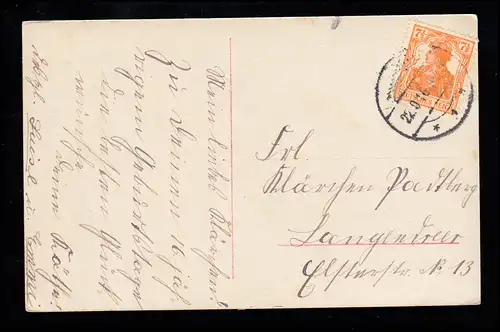 Mein liebes Klärchen!
Zu Deinem 16. jäh-
rigem Geburtstage
die besten Glück
wünsche
Deine Käthe
Luise u.
7½
7½
Frl.
Klärchen Padberg
Langendreer
Elsterstr. N. 13